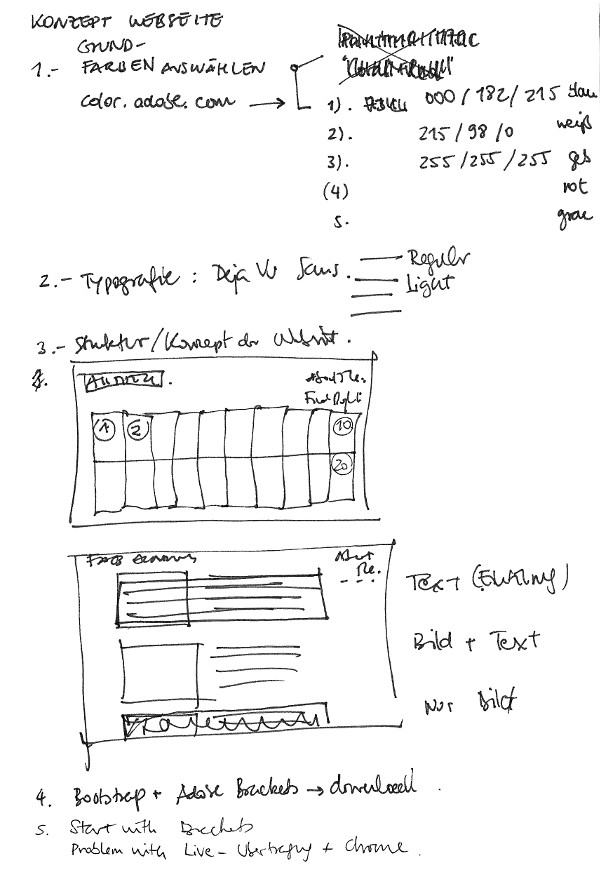 KONZEPT WEBSEITE
GRUND-
1.- FARBEN AUSWÄHLEN
color.adobe.com →
1). 000/182/215 blau
2). 215/98/0 weiß
3). 255/255/255 gelb
(4) rot
5. grau
2.- Typografie : Deja Vu Sans.
Regular
Light
3.- Struktur/Konzept der Website.
About Me.
1 2 10
20
About
Me.
Text (Einleitung)
Bild + Text
Nur Bild
4. Bootstrap + Adobe Brackets → download.
5. Start with Brackets
Problem with Live-Übertragung + Chrome.